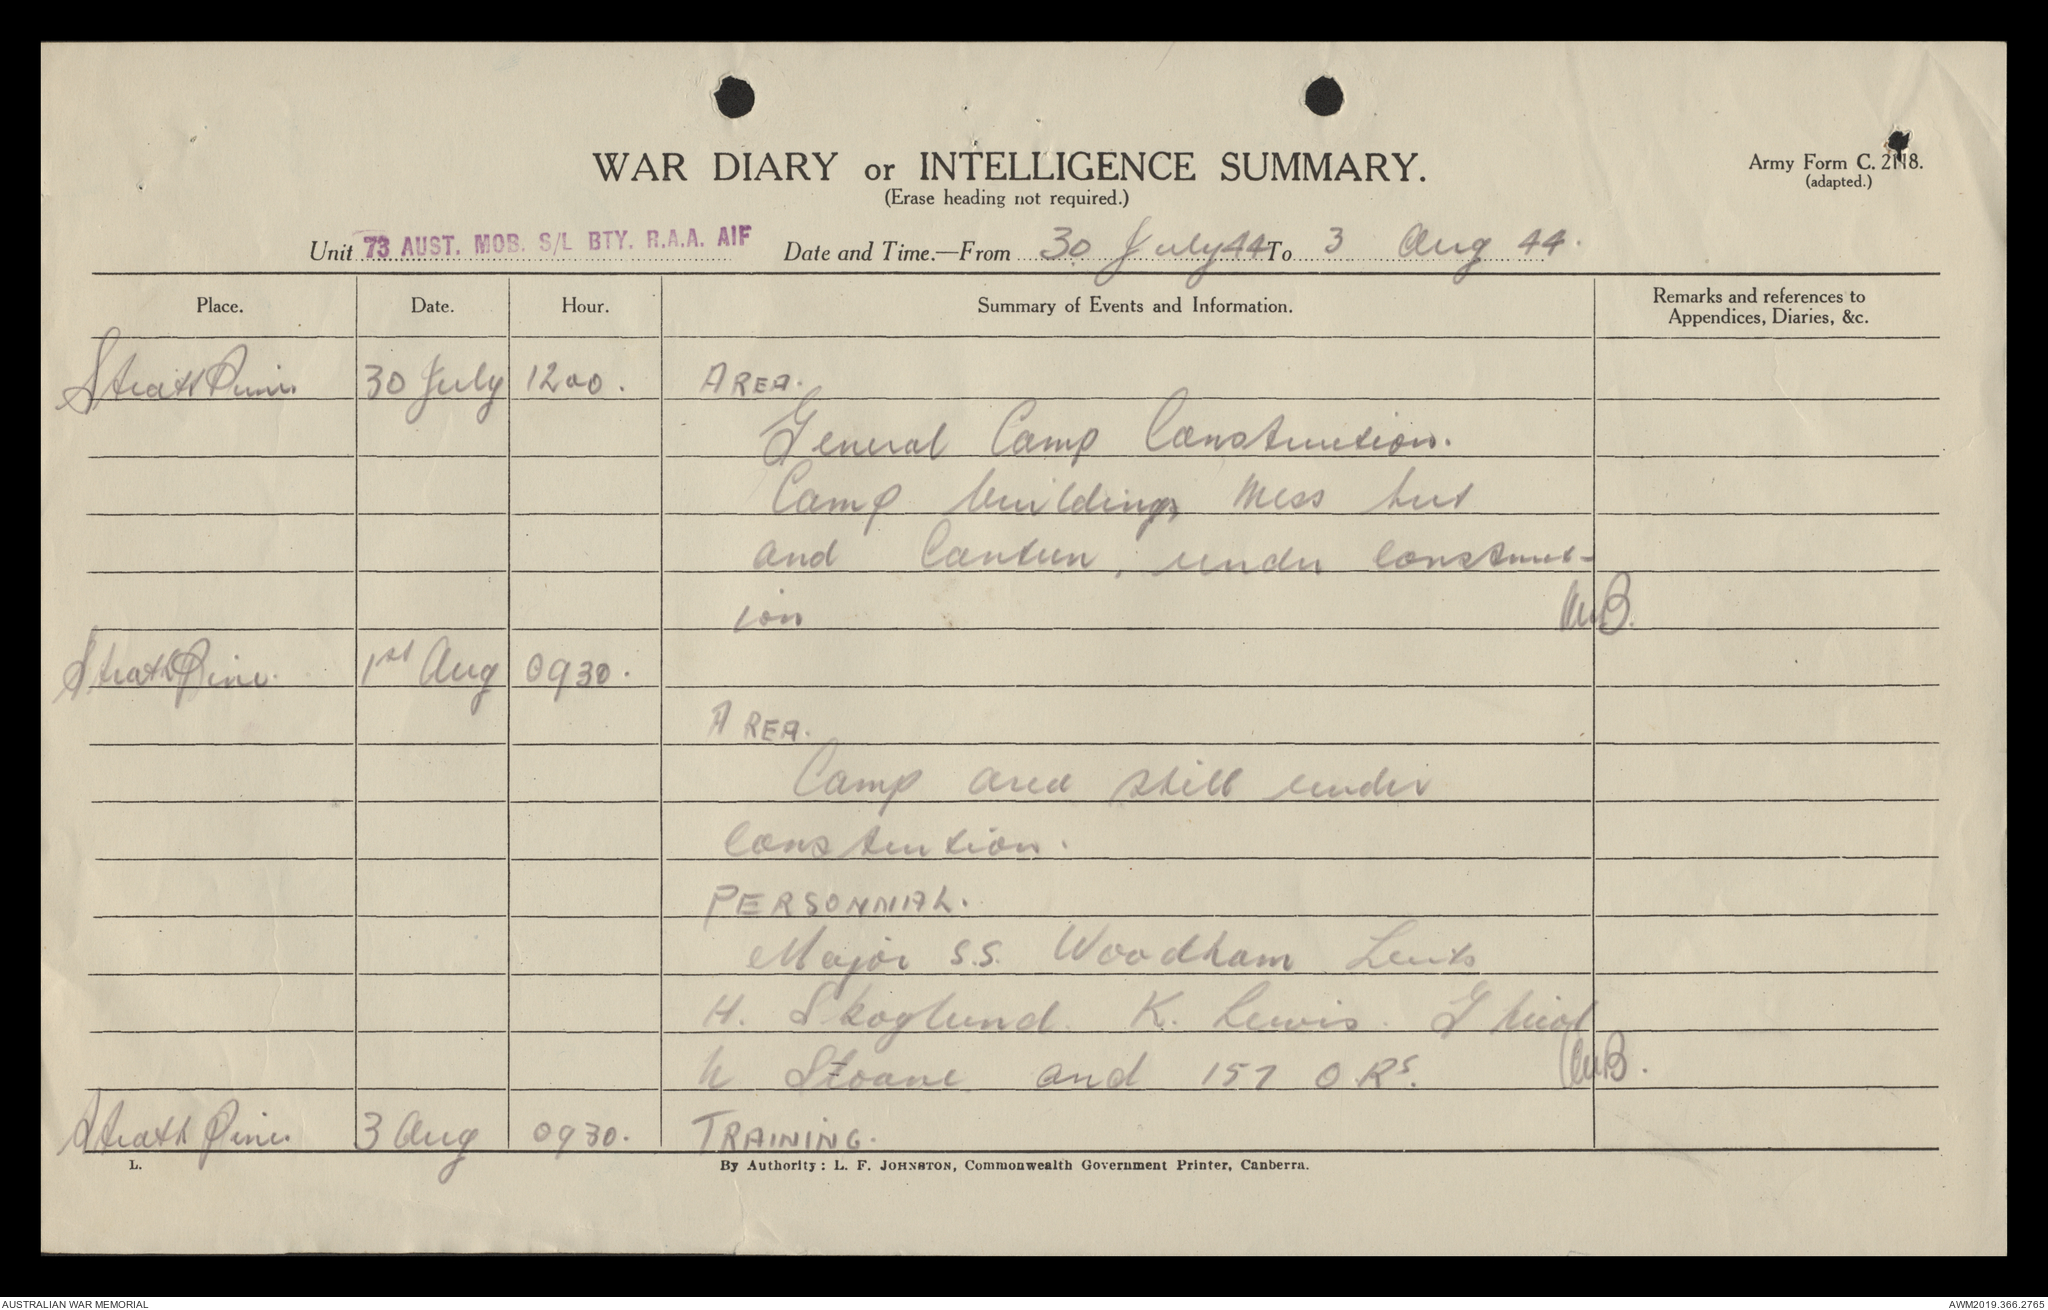 WAR DIARY or INTELLIGENCE SUMMARY.
(Erase heading not required.)
Army Form C. 2118.
(adapted.)
Unit 73 AUST. MOB. S/L BTY. R.A.A. AIF Date and Time.—From 30 July 44 To 3 Aug 44.
Place. Date. Hour. Summary of Events and Information. Remarks and references to
Appendices, Diaries, &c.
Strath Pine. 30 July 1200. AREA.
General Camp Construction.
Camp buildings Mess hut
and Canteen, under construct-
ion
Strath Pine. 1st Aug 0930.
AREA.
Camp area still under
Construction.
PERSONNIAL.
Major S.S. Woodham Leuts
H. Skoglund K. Lewis. G
N Sloane and 157 O.Rs.
Strath Pine. 3 Aug 0930. TRAINING.
L. By Authority: L. F. JOHNSTON, Commonwealth Government Printer, Canberra.
AUSTRALIAN WAR MEMORIAL AWM2019.366.2765